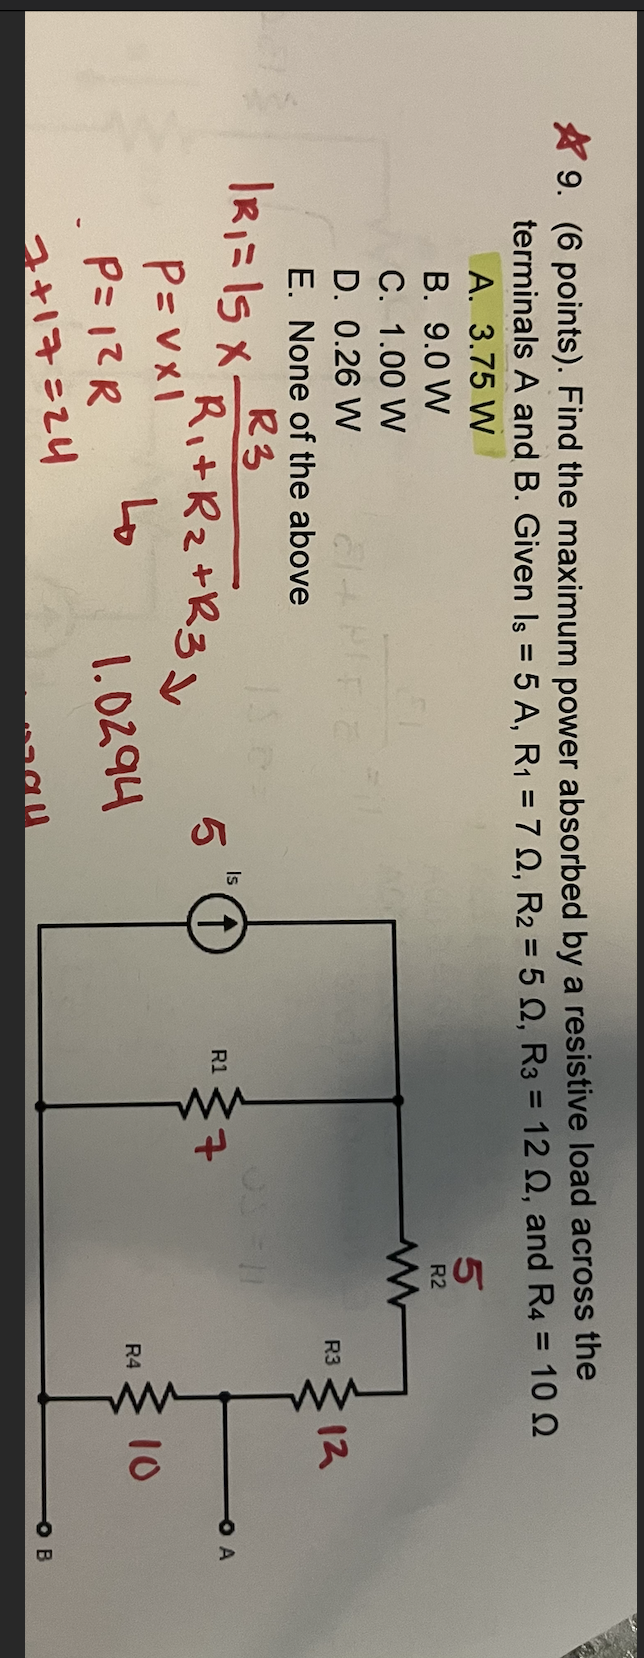 ☆ 9. (6 points). Find the maximum power absorbed by a resistive load across the
terminals A and B. Given Is = 5 A, R1 = 7 Ω, R2 = 5 Ω, R3 = 12 Ω, and R4 = 10 Ω
A. 3.75 W
B. 9.0 W
C. 1.00 W
D. 0.26 W
E. None of the above
IR1 = Is x R3
R1 + R2 + R3
P = V x I
P = I2 R
1.0294
7 + 17 = 24
5
R2
R3 12
5
Is
R1 7
R4 10
A
B